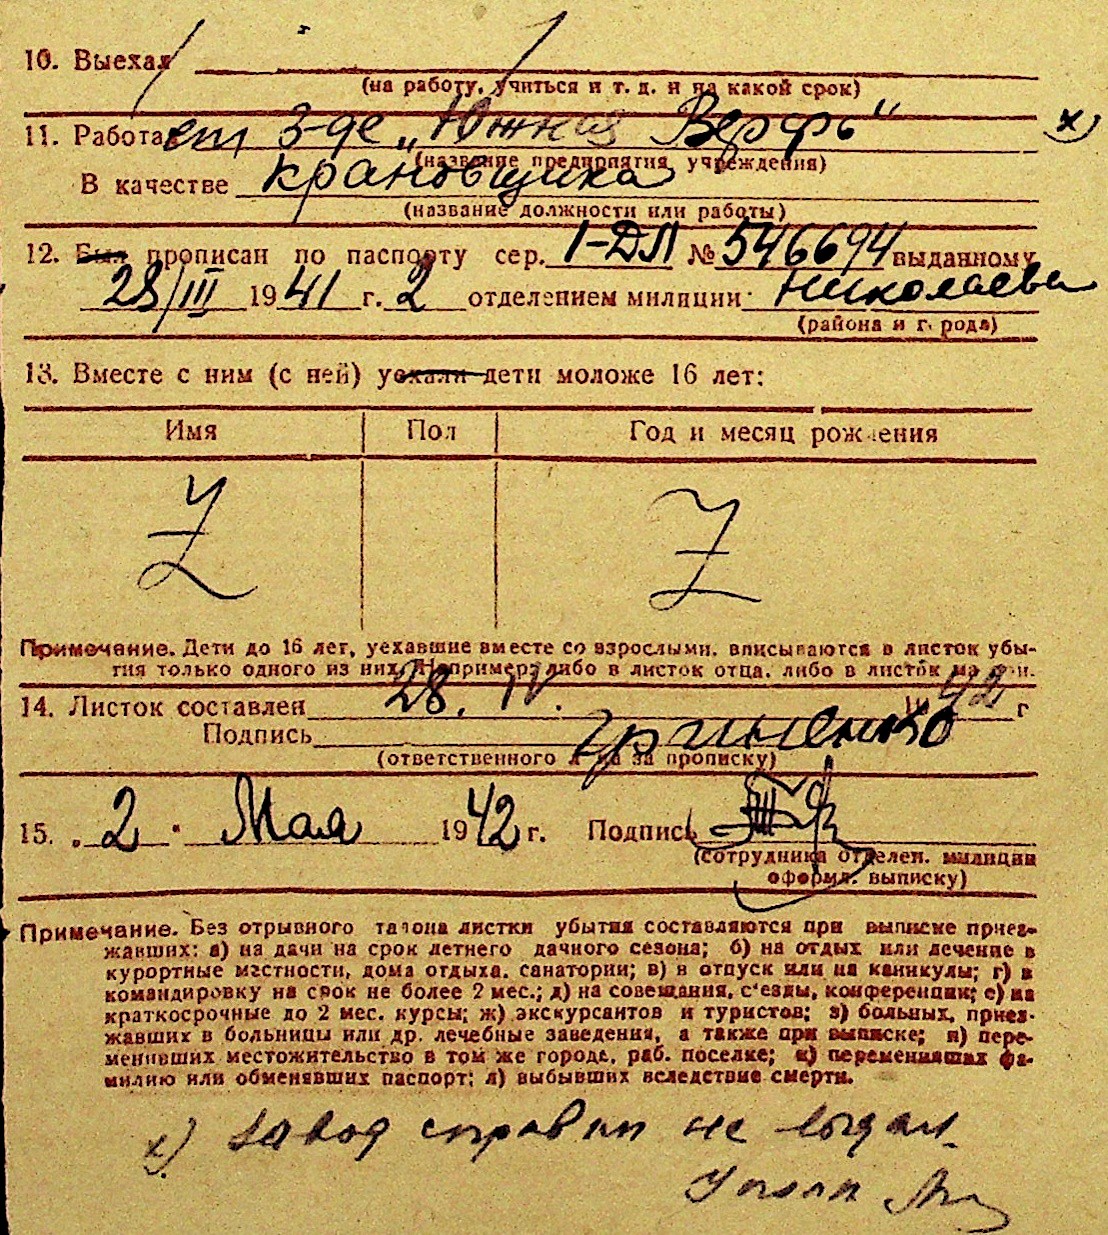 10. Выехал
(на работу, учиться и т. д. и на какой срок)
11. Работает З-де „Южная Верфь" х)
(название предприятия, учреждения)
В качестве крановщика
(название должности или работы)
12. Был прописан по паспорту сер. I-ДЛ № 546694 выданному
28/III 1941 г. 2 отделением милиции Николаева
(района и города)
13. Вместе с ним (с ней) уехали дети моложе 16 лет:
Имя Пол Год и месяц рождения
Z Z
Примечание. Дети до 16 лет, уехавшие вместе со взрослыми, вписываются в листок убы-
тия только одного из них. Например: либо в листок отца, либо в листок матери.
14. Листок составлен 28. IV. 1942 г
Подпись Гриненко
(ответственного л-ца за прописку)
15. „2" Мая 1942 г. Подпись
(сотрудника отделен. милиции
оформл. выписку)
Примечание. Без отрывного талона листки убытия составляются при выписке приез-
жавших: а) на дачи на срок летнего дачного сезона; б) на отдых или лечение в
курортные местности, дома отдыха, санатории; в) в отпуск или на каникулы; г) в
командировку на срок не более 2 мес.; д) на совещания, с'езды, конференции; е) на
краткосрочные до 2 мес. курсы; ж) экскурсантов и туристов; з) больных, приез-
жавших в больницы или др. лечебные заведения, а также при выписке; и) пере-
менивших местожительство в том же городе, раб. поселке; к) переменивших фа-
милию или обменявших паспорт; л) выбывших вследствие смерти.
х) завод справки не выдал.